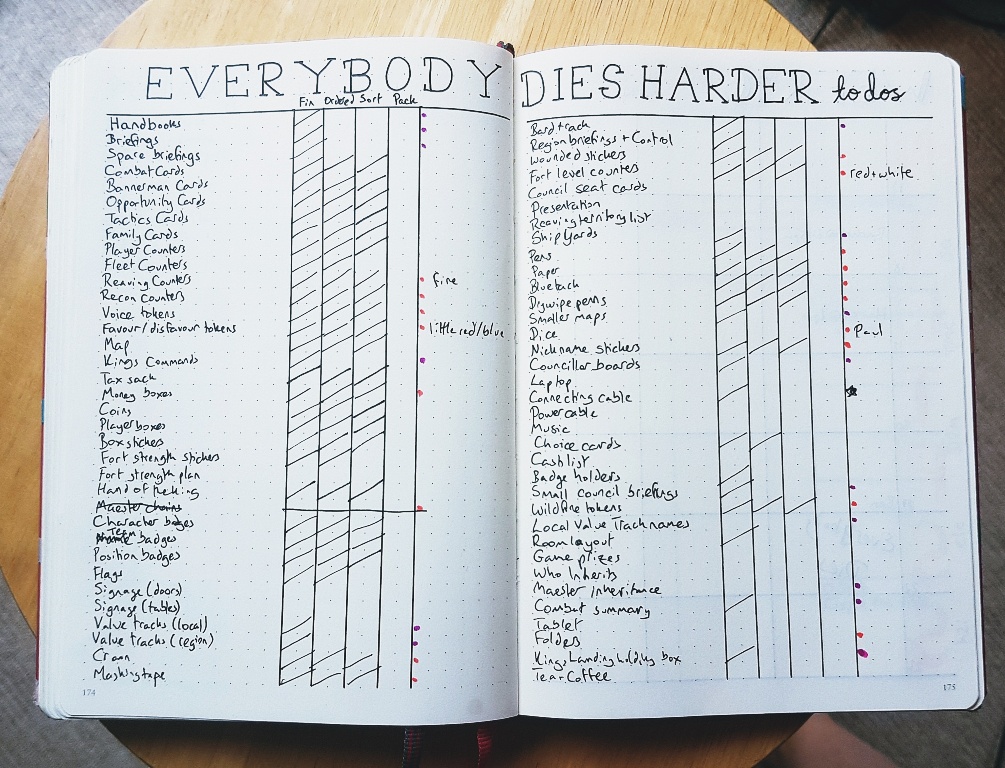 EVERYBODY DIES HARDER todos
Fin Ordered Sort Pack
Handbooks
Briefings
Spare briefings
Combat Cards
Bannerman Cards
Opportunity Cards
Tactics Cards
Family Cards
Player Counters
Fleet Counters
Reaving Counters fine
Recon Counters
Voice tokens
Favour/disfavour tokens little red/blue
Map
Kings Commands
Tax sack
Money boxes
Coins
Player boxes
Box stickers
Fort strength stickers
Fort strength plan
Hand of the king
Maester chains
Character badges
Team badges
Position badges
Flags
Signage (doors)
Signage (tables)
Value tracks (local)
Value tracks (region)
Crown
Masking tape
174
Bard track
Region briefings + Control
Wounded stickers
Fort level counters red + white
Council seat cards
Presentation
Reaving territory list
Ship Yards
Pens
Paper
Bluetack
Drywipe pens
Smaller maps
Dice Paul
Nickname stickers
Councillor boards
Laptop
Connecting cable
Power cable
Music
Choice cards
Cash list
Badge holders
Small council briefings
Wildfire tokens
Local Value Track names
Room layout
Game prizes
Who Inherits
Maester inheritance
Combat summary
Tablet
Folders
Kings Landing holding box
Tea + Coffee
175